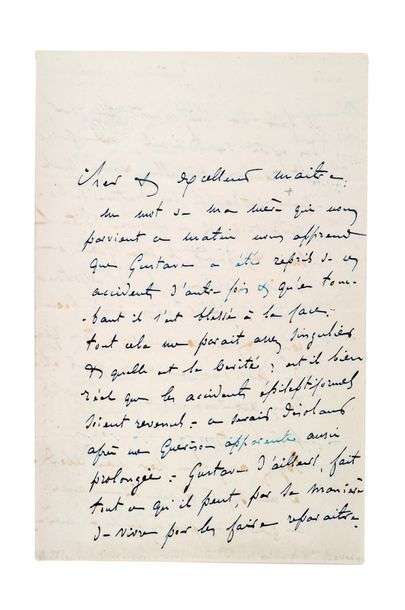 Cher & excellent maitre.
un mot de ma mère qui nous
parvient ce matin nous apprend
que Gustave a été repris de ces
accidents d'autre fois & qu'en tom-
-bant il s'est blessé à la face.
tout cela me parait assez singulier
& quelle est la vérité ; est il bien
réel que les accidents épileptiformes
soient revenus - ce serait désolant
après une guérison apparente aussi
prolongée - Gustave d'ailleurs, fait
tout ce qu'il peut, par sa manière
de vivre pour les faire reparaitre.